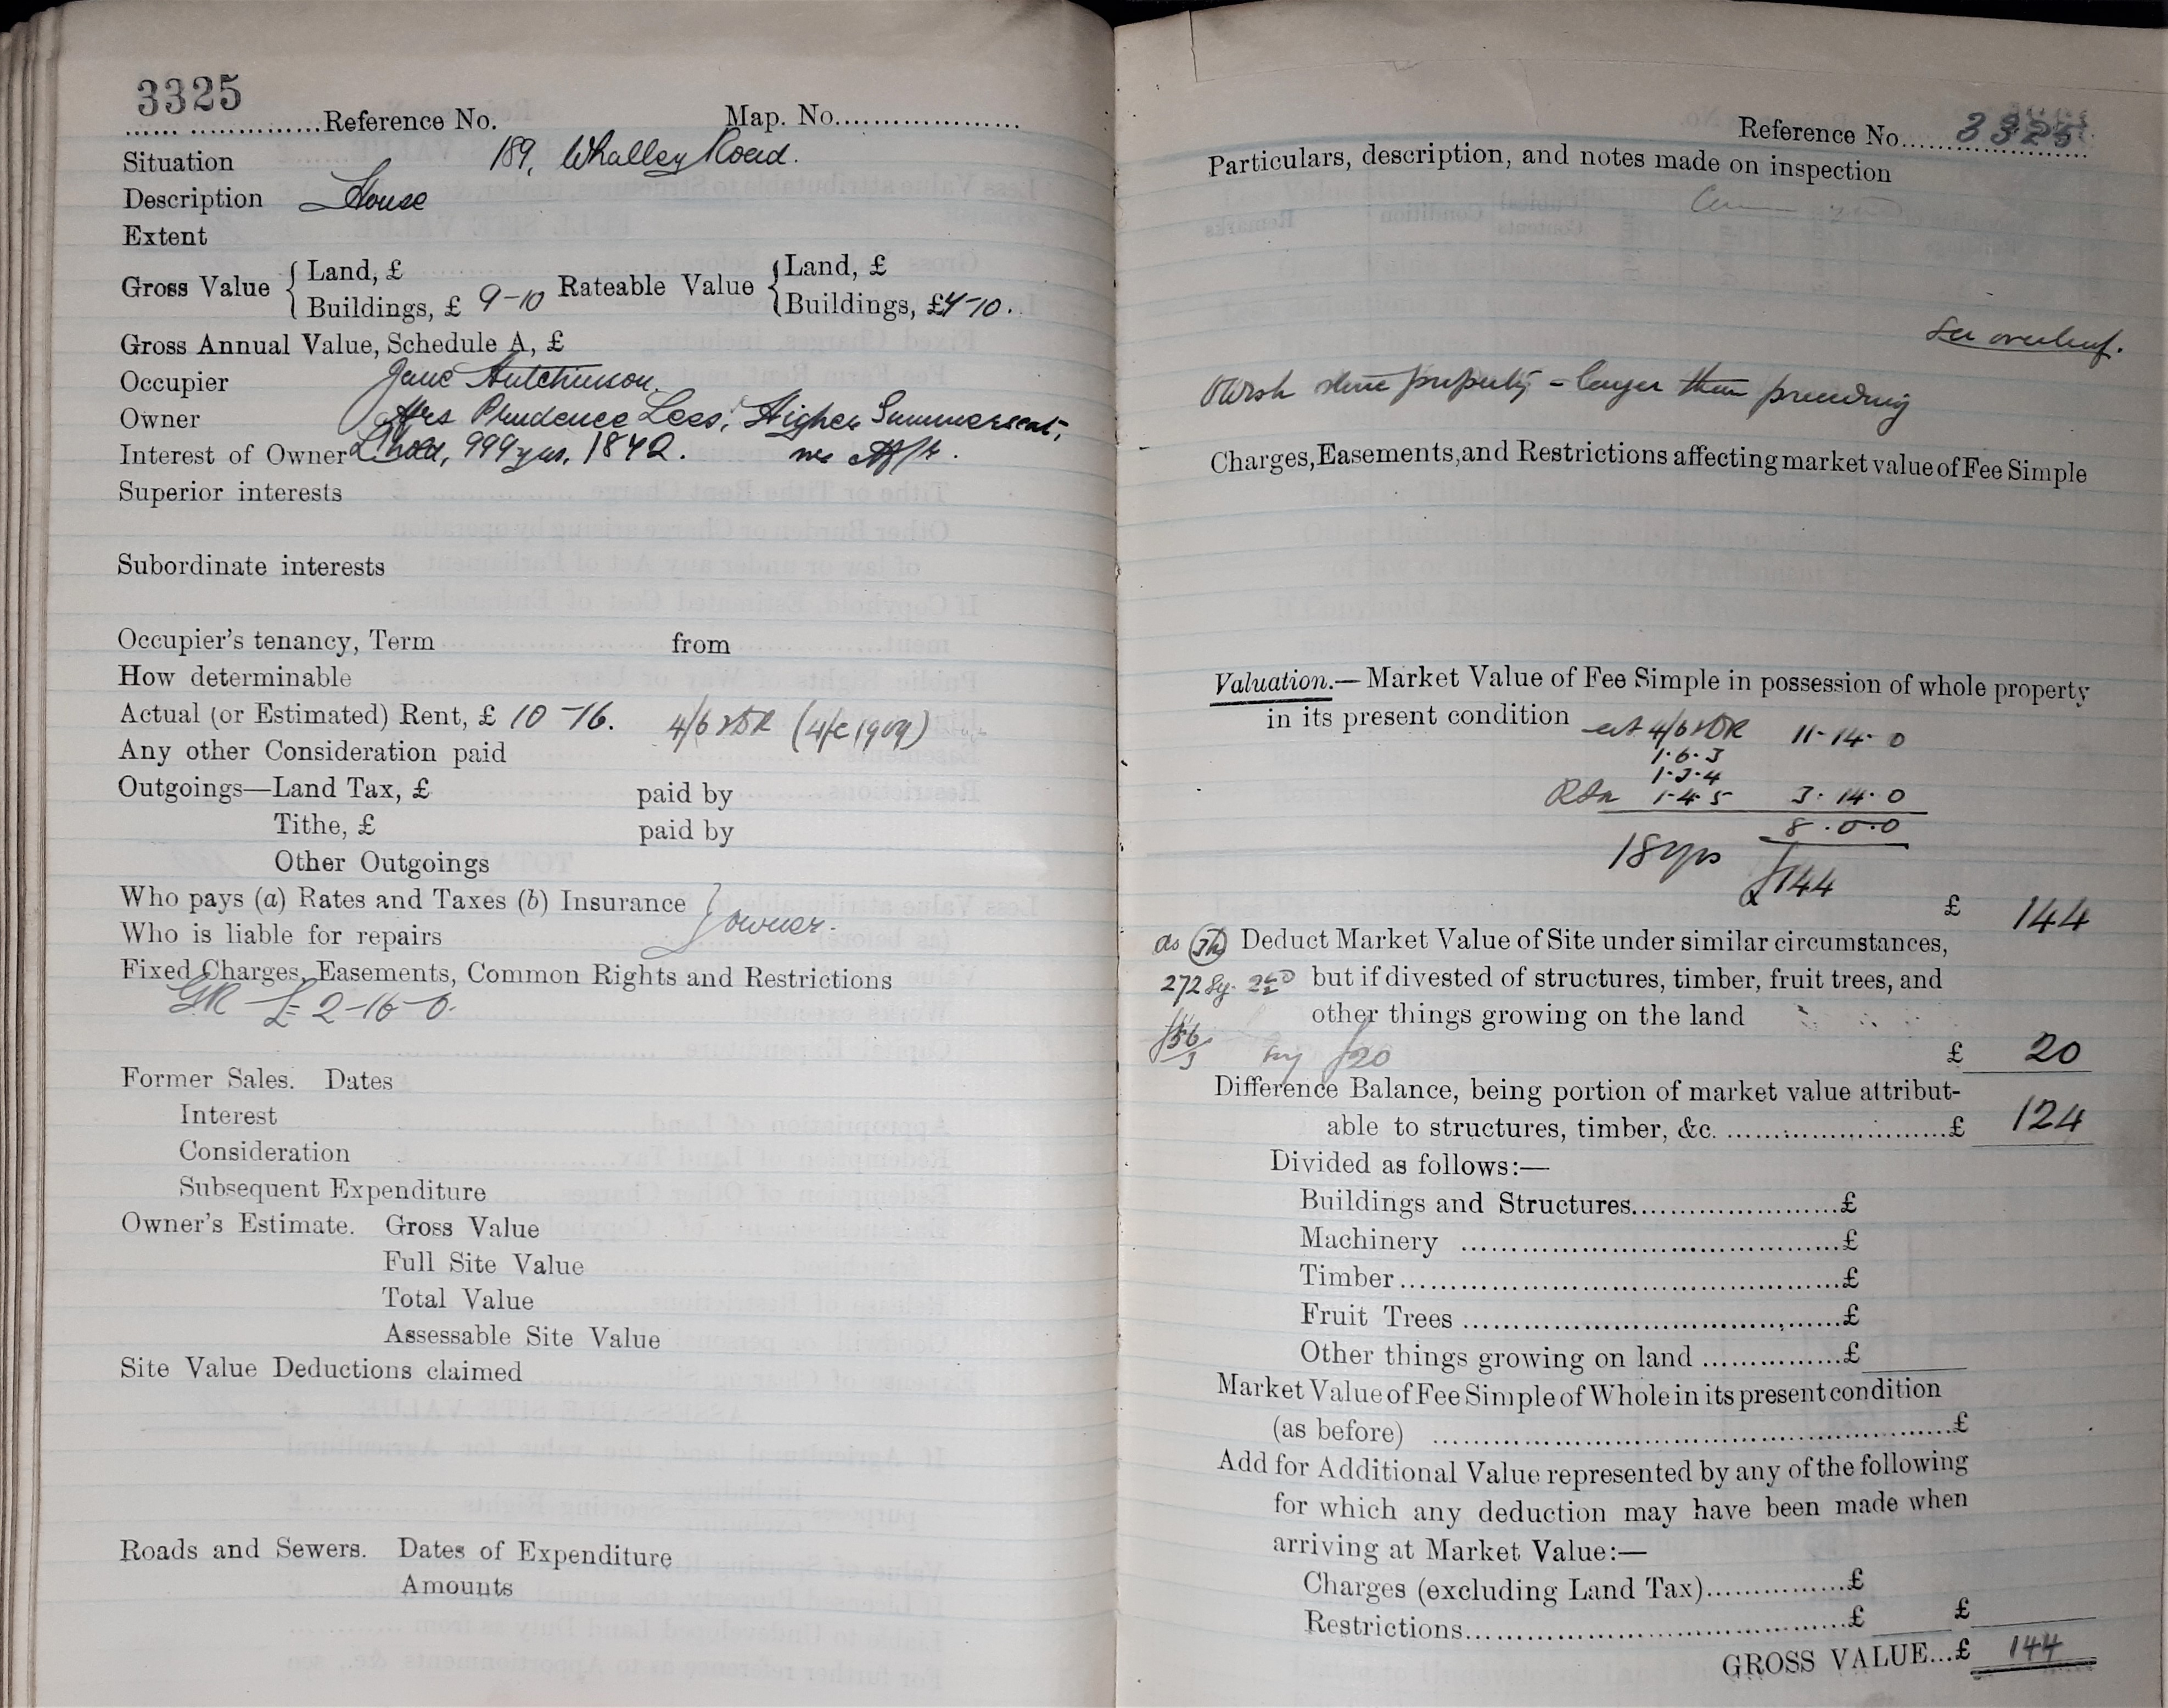 3325
...... ..............Reference No. Map. No....................
Situation 189, Whalley Road.
Description House
Extent
Gross Value { Land, £
Buildings, £ 9-10 Rateable Value { Land, £
Buildings, £ 4-10.
Gross Annual Value, Schedule A, £
Occupier Jane Hutchinson.
Owner Mrs Prudence Lees, Higher Summerseat,
Interest of Owner Lhold, 999 yrs, 1842. nr
Superior interests
Subordinate interests
Occupier's tenancy, Term from
How determinable
Actual (or Estimated) Rent, £ 10-16. 4/6 (4/c 1909)
Any other Consideration paid
Outgoings—Land Tax, £ paid by
Tithe, £ paid by
Other Outgoings
Who pays (a) Rates and Taxes (b) Insurance } owner.
Who is liable for repairs
Fixed Charges, Easements, Common Rights and Restrictions
GR £2-16-0.
Former Sales. Dates
Interest
Consideration
Subsequent Expenditure
Owner's Estimate. Gross Value
Full Site Value
Total Value
Assessable Site Value
Site Value Deductions claimed
Roads and Sewers. Dates of Expenditure
Amounts
Reference No. 3325
Particulars, description, and notes made on inspection
See overleaf.
stone property - larger than preceding
Charges, Easements, and Restrictions affecting market value of Fee Simple
Valuation.— Market Value of Fee Simple in possession of whole property
in its present condition at 4/6 11-14-0
1-6-3
1-3-4
1-4-5 3-14-0
8-0-0
18 yps
£144
£ 144
as Deduct Market Value of Site under similar circumstances,
272 Sy. but if divested of structures, timber, fruit trees, and
other things growing on the land
£56 say £20 £ 20
Difference Balance, being portion of market value attribut-
able to structures, timber, &c. ..........................£ 124
Divided as follows:—
Buildings and Structures........................£
Machinery ............................................£
Timber...................................................£
Fruit Trees ............................................£
Other things growing on land ................£
Market Value of Fee Simple of Whole in its present condition
(as before) .............................................................£
Add for Additional Value represented by any of the following
for which any deduction may have been made when
arriving at Market Value:—
Charges (excluding Land Tax)................£
Restrictions............................................£ £
GROSS VALUE...£ 144